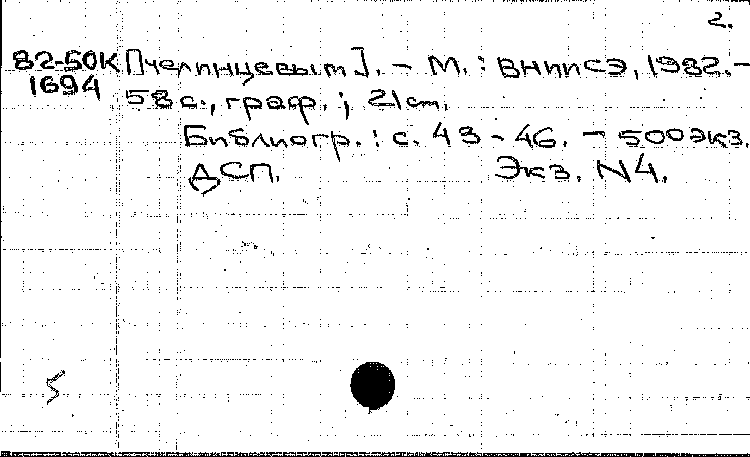 2.
82-50К Пчелинцевым]. - М. : ВНИИСЭ, 1982.-
1694 58 с., граф. ; 21 cm.
Библиогр. : с. 43 - 46. - 500 экз.
ДСП. Экз. N4.
5